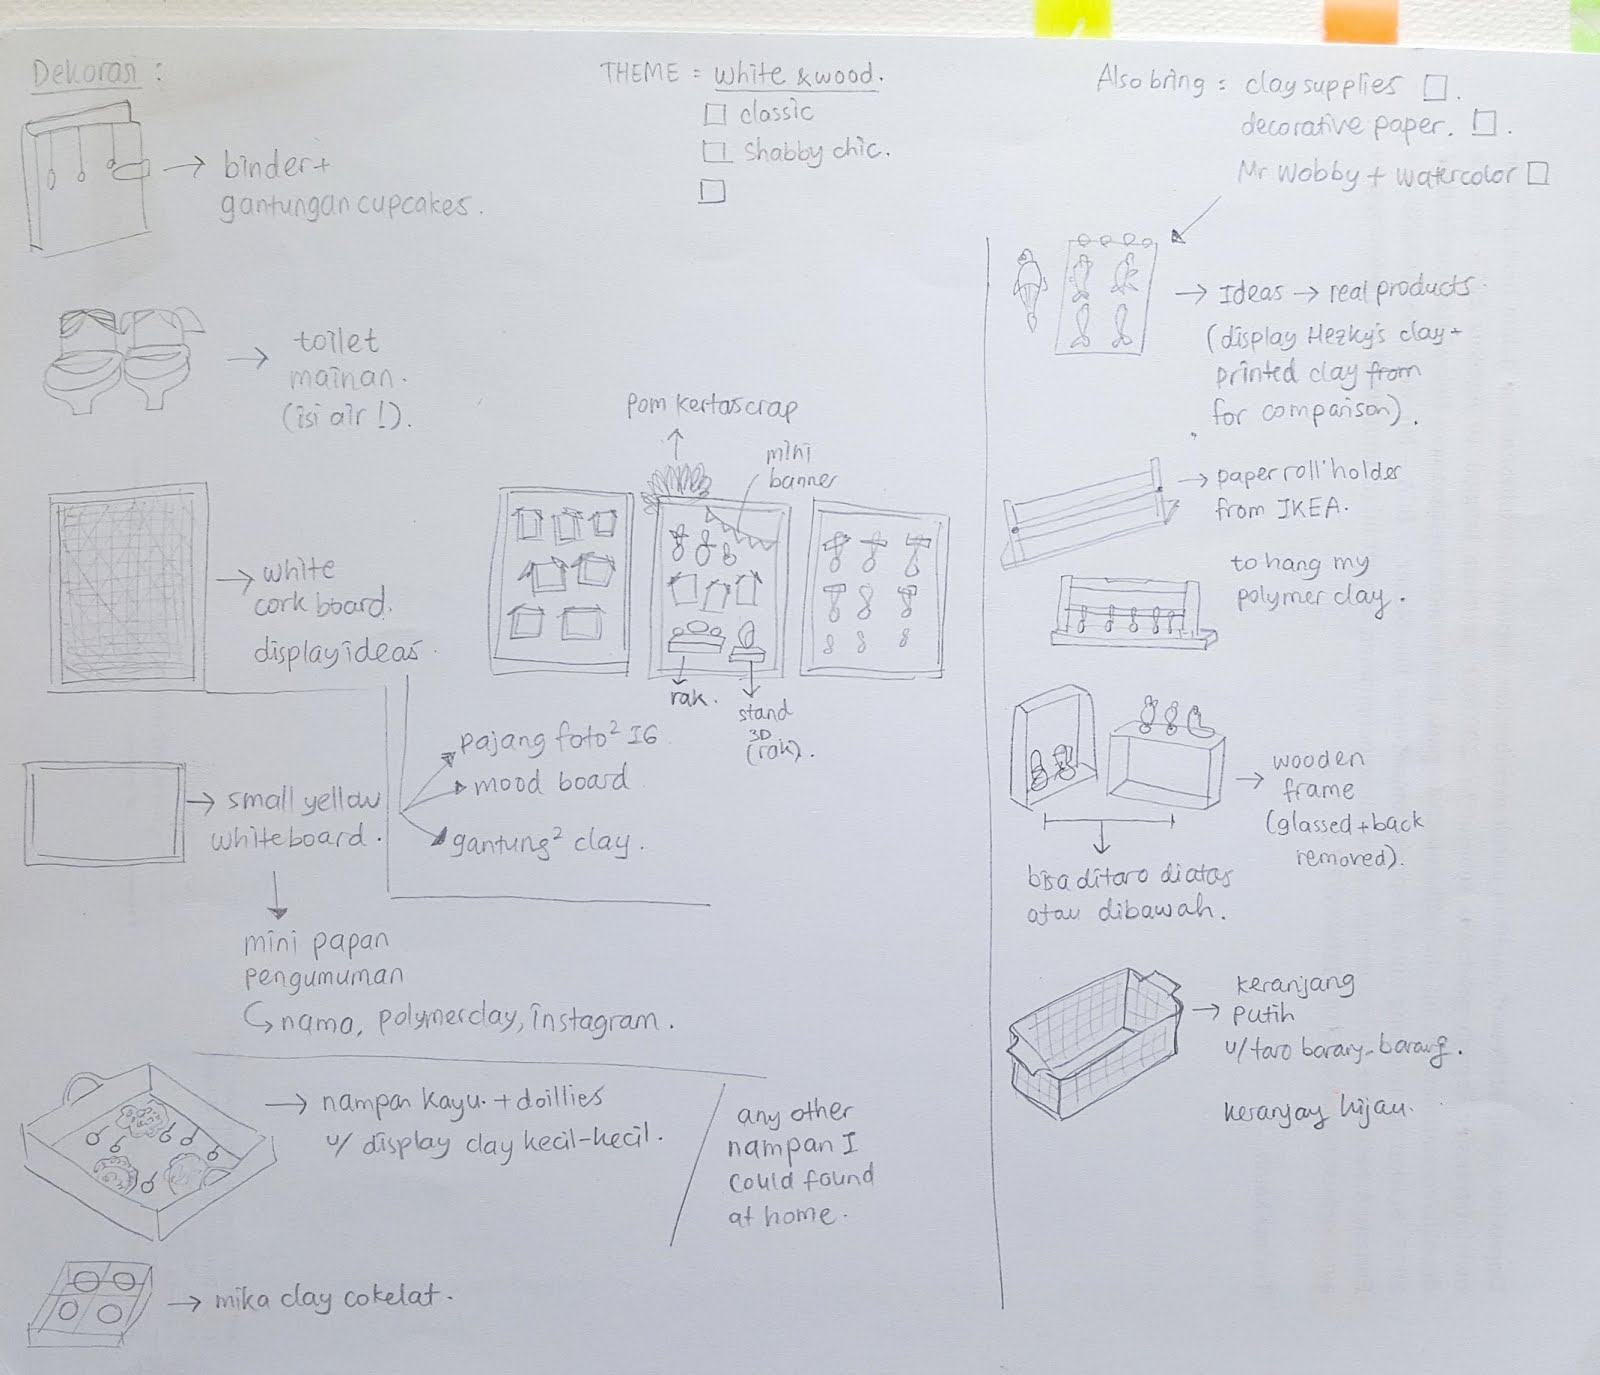 Dekorasi :
binder +
gantungan cupcakes.
toilet
mainan.
(isi air !).
white
cork board.
display ideas.
pajang foto² IG
mood board
gantung² clay.
small yellow
whiteboard.
mini papan
pengumuman
nama, polymerclay, instagram.
nampan kayu + doillies
u/ display clay kecil-kecil.
any other
nampan I
could found
at home.
mika clay cokelat.
THEME = white & wood.
classic
shabby chic.
pom kertas crap
mini
banner
rak.
stand
3D
(rak).
Also bring = clay supplies
decorative paper.
Mr Wobby + watercolor
Ideas → real products.
(display Hezky's clay +
printed clay from
for comparison).
paper roll holder
from IKEA.
to hang my
polymer clay.
wooden
frame
(glassed + back
removed).
bisa ditaro diatas
atau dibawah.
keranjang
putih
u/ taro barang-barang.
keranjang hijau.